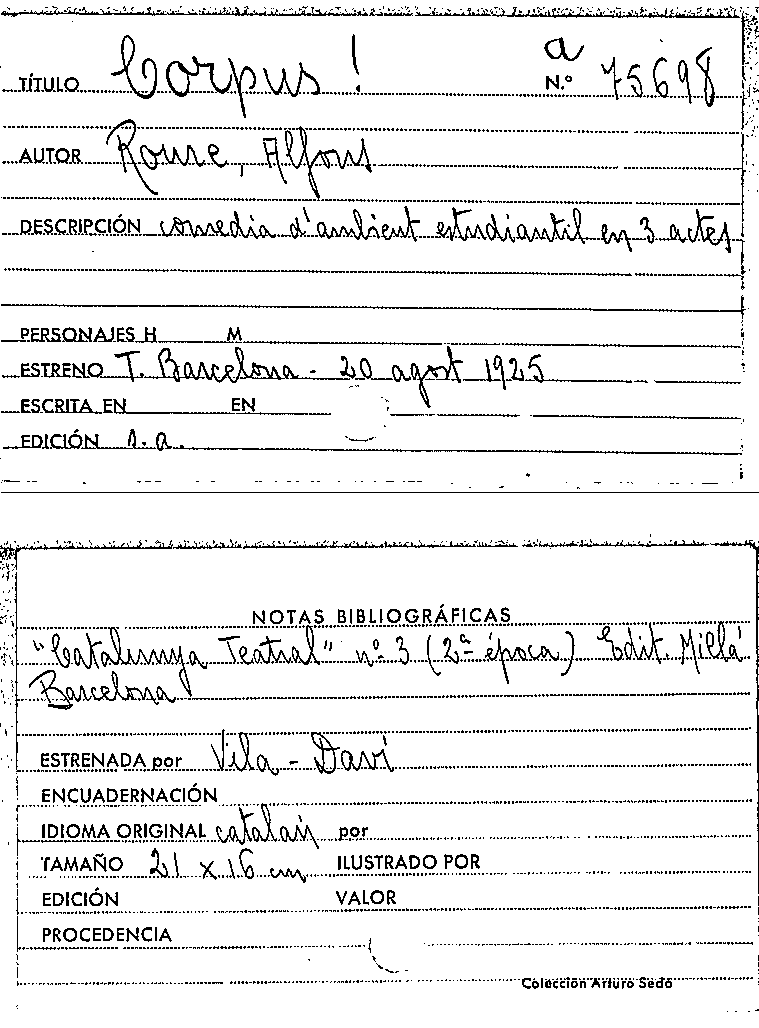 a
TÍTULO Corpus! N.º 75698
AUTOR Roure, Alfons
DESCRIPCIÓN comedia d'ambient estudiantil en 3 actes
PERSONAJES H M
ESTRENO T. Barcelona - 20 agost 1925
ESCRITA EN EN
EDICIÓN s.a.
NOTAS BIBLIOGRÁFICAS
"Catalunya Teatral" nº 3 (2ª época) Edit. Millá
Barcelona
ESTRENADA por Vila - Daví
ENCUADERNACIÓN
IDIOMA ORIGINAL catalán por
TAMAÑO 21 x 16 cm ILUSTRADO POR
EDICIÓN VALOR
PROCEDENCIA
Colección Arturo Sedó